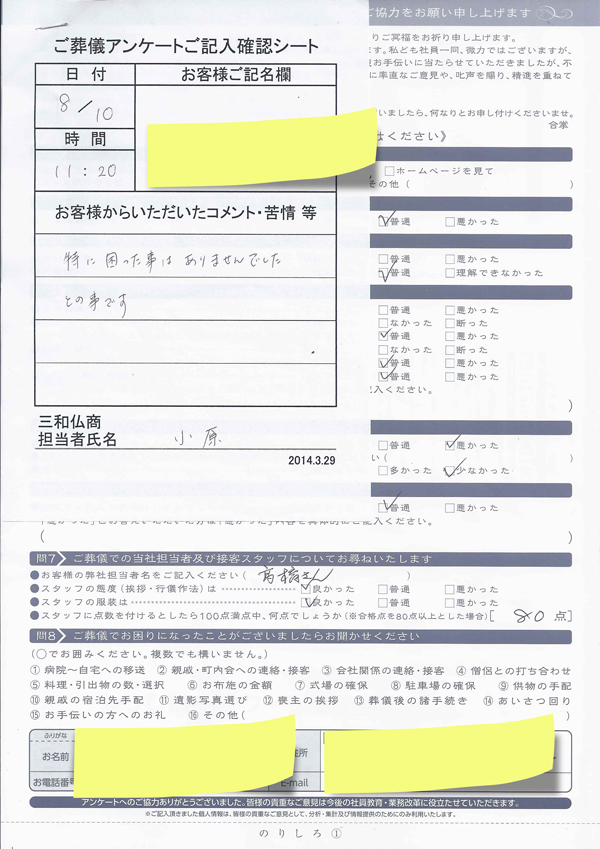 ご葬儀アンケートご記入確認シート
日付
お客様ご記名欄
8/10
時間
11:20
お客様からいただいたコメント・苦情 等
特に困った事はありませんでした
との事です
三和仏商
担当者氏名 小原
2014.3.29
ご協力をお願い申し上げます
りご冥福をお祈り申し上げます。
ます。私ども社員一同、微力ではございますが、
お手伝いに当たらせていただきましたが、不
に率直なご意見や、叱声を賜り、精進を重ねて
いましたら、何なりとお申し付けくださいませ。
合掌
はください》
□ホームページを見て
その他( )
□普通 □悪かった
□普通 □悪かった
□普通 □理解できなかった
□普通 □悪かった
□なかった □断った
□普通 □悪かった
□なかった □断った
□普通 □悪かった
□普通 □悪かった
記入ください。
)
□普通 □悪かった
い( )
□多かった □少なかった
□普通 □悪かった
( )
問7 ご葬儀での当社担当者及び接客スタッフについてお尋ねいたします
●お客様の弊社担当者名をご記入ください( 高橋さん )
●スタッフの態度(挨拶・行儀作法)は □良かった □普通 □悪かった
●スタッフの服装は □良かった □普通 □悪かった
●スタッフに点数を付けるとしたら100点満点中、何点でしょうか(※合格点を80点以上とした場合)[ 80 点]
問8 ご葬儀でお困りになったことがございましたらお聞かせください
(○でお囲みください。複数でも構いません。)
①病院〜自宅への移送 ②親戚・町内会への連絡・接客 ③会社関係の連絡・接客 ④僧侶との打ち合わせ
⑤料理・引出物の数・選択 ⑥お布施の金額 ⑦式場の確保 ⑧駐車場の確保 ⑨供物の手配
⑩親戚の宿泊先手配 ⑪遺影写真選び ⑫喪主の挨拶 ⑬葬儀後の諸手続き ⑭あいさつ回り
⑮お手伝いの方へのお礼 ⑯その他( )
ふりがな
お名前
住所
お電話番号
E-mail
アンケートへのご協力ありがとうございました。皆様の貴重なご意見は今後の社員教育・業務改革に役立たせていただきます。
※ご記入頂きました個人情報は、皆様の貴重なご意見として、分析・集計及び情報提供のためにのみ利用いたします。
のりしろ①